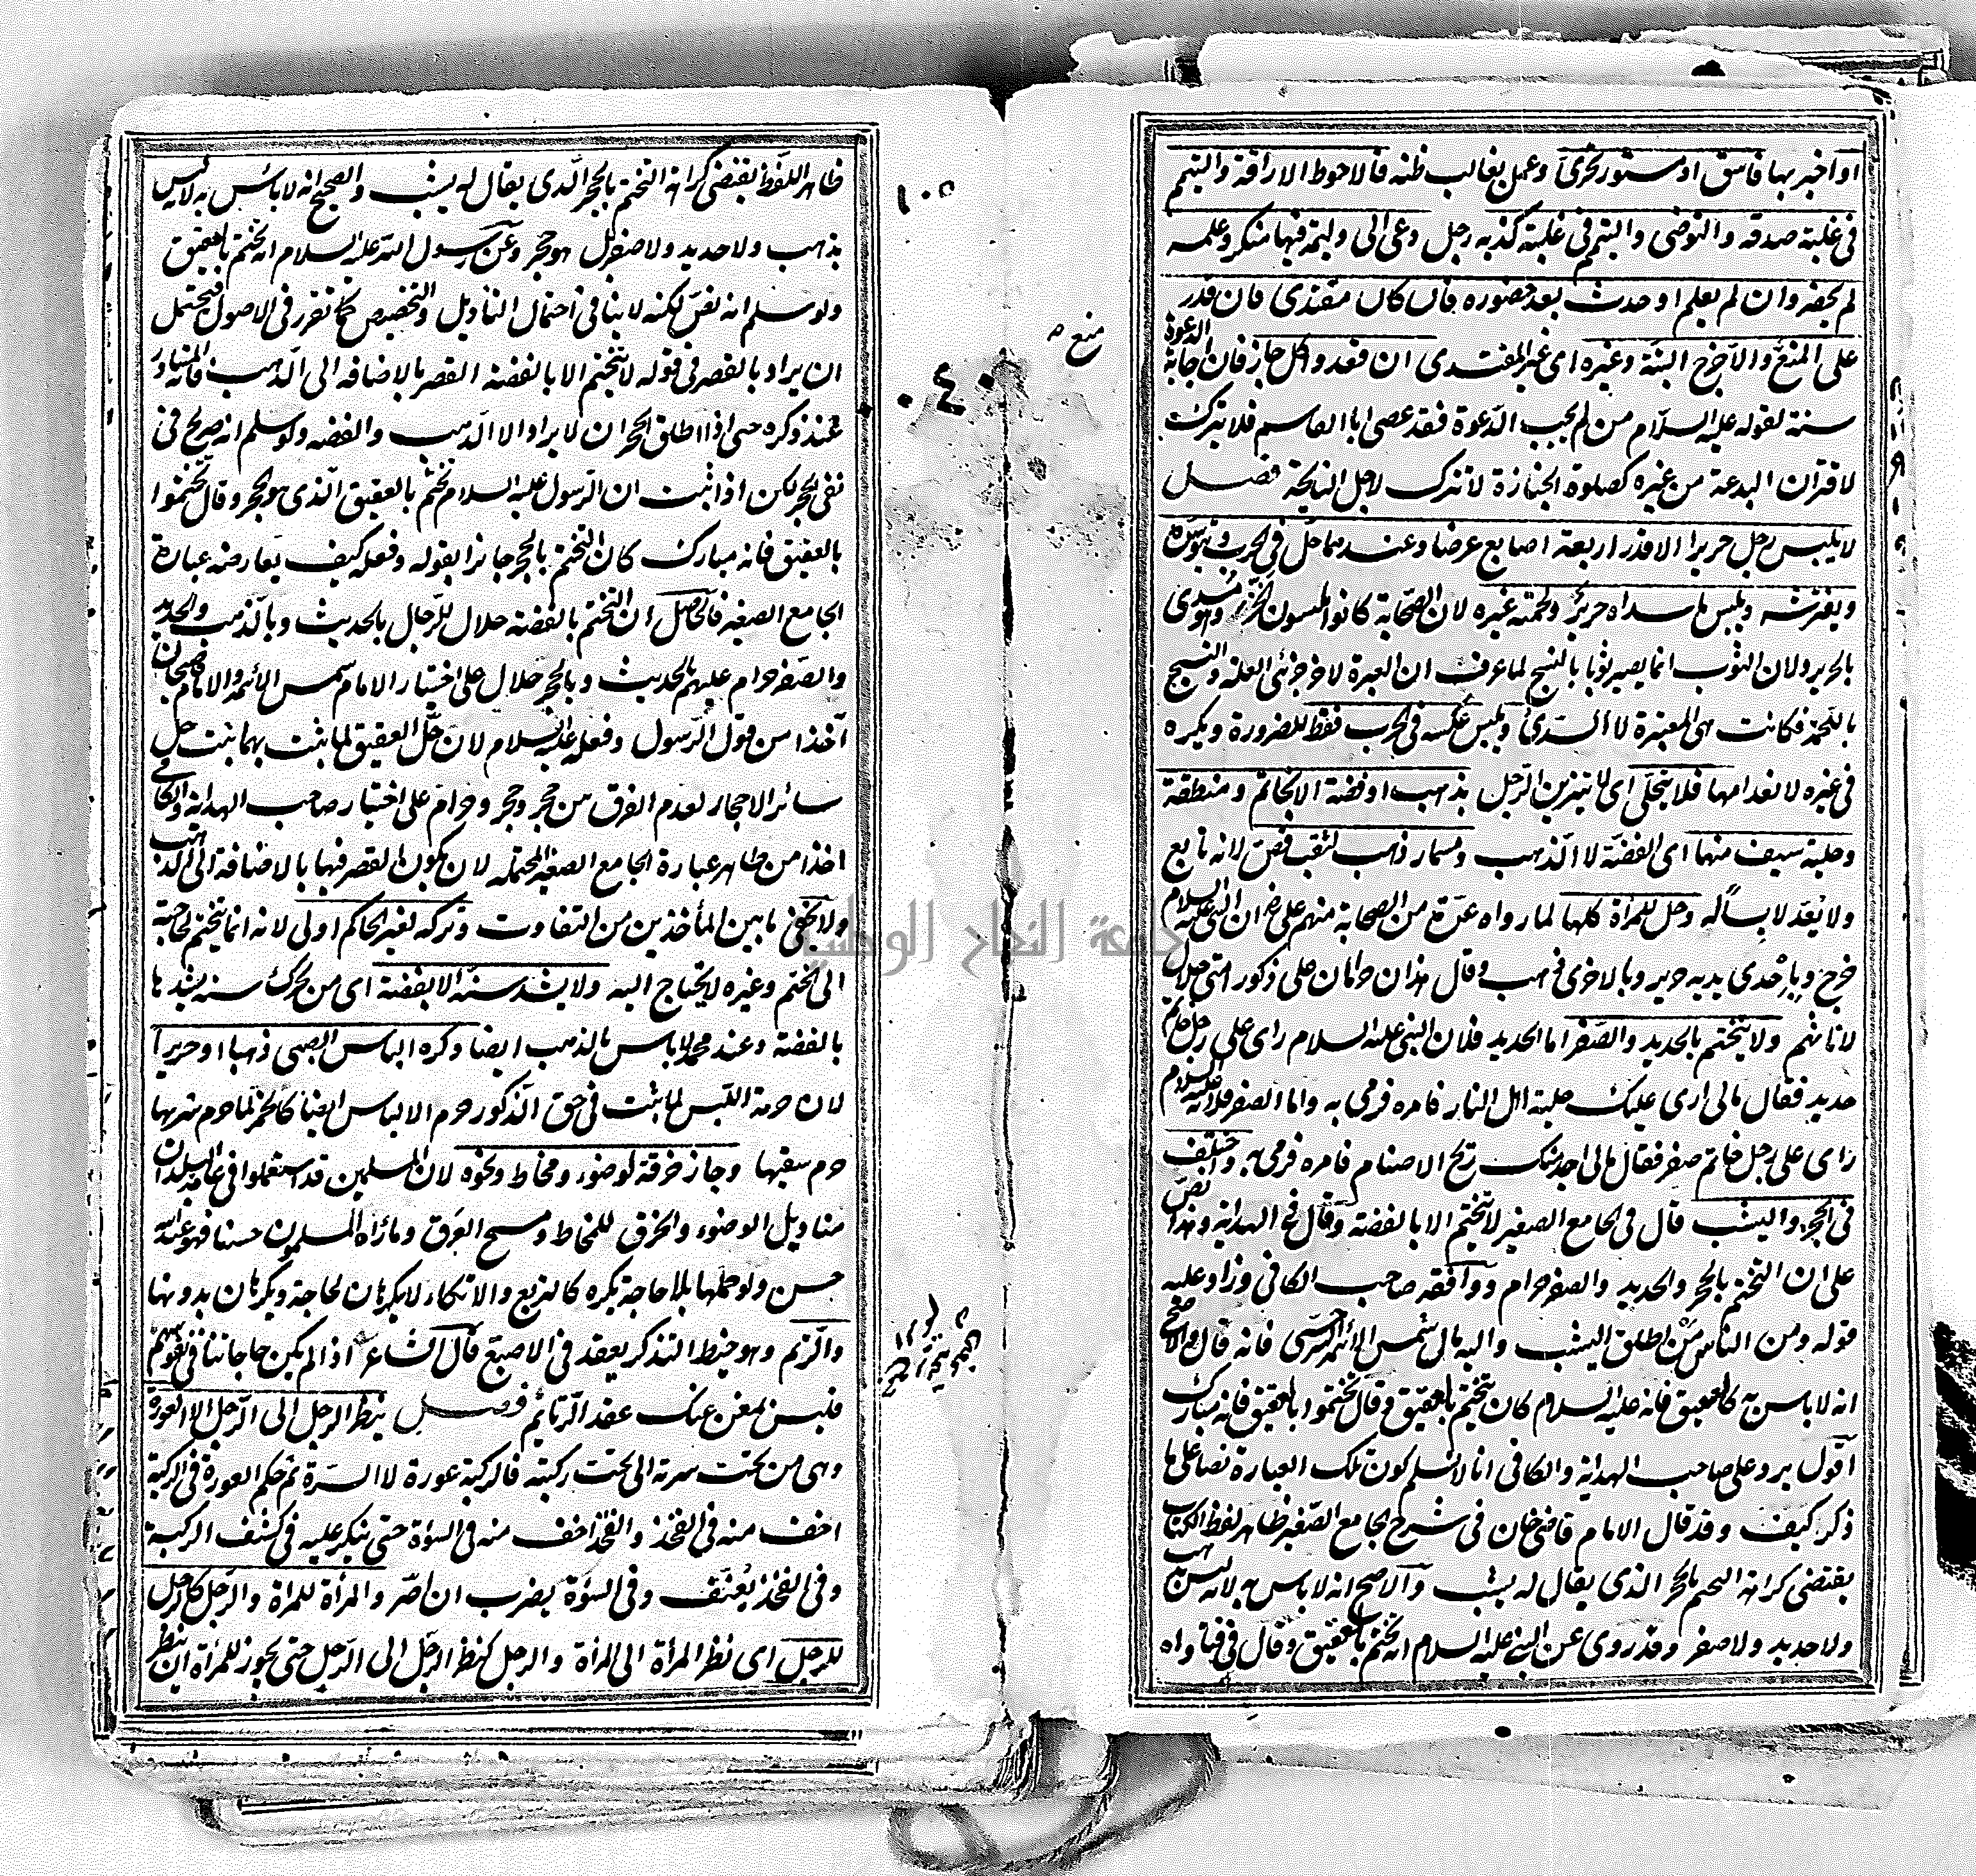 او اخبر بها فاسق او مستور تحرى وعمل بغالب ظنه فالاحوط الاراقة والتيمم
فى غلبة صدقه والتوضى والتيمم فى غلبة كذبه رجل دعى الى وليمة فيها منكر وعلمه
لم يحضر وان لم يعلم او حدث بعد حضوره فان كان مقتدى فان قدر
على المنع والا خرج البتة وغيره اى غير المقتدى ان قعد واكل جاز فان اجابة الدعوة
سنة لقوله عليه السلام من لم يجب الدعوة فقد عصى ابا القاسم فلا تترك
لاقتران البدعة من غيره كصلوة الجنازة لا تترك لاجل النايحة فصل
لا يلبس رجل حريرا الا قدر اربعة اصابع عرضا وعندهما حل فى الحرب ويتوسده
ويفترشه ويلبس ما سداه حرير ولحمته غيره لان الصحابة كانوا يلبسون الخز وهو مسدى
بالحرير ولان الثوب انما يصير ثوبا بالنسج لما عرف ان العبرة لاخر جزئى العلة والنسج
باللحمة فكانت هى المعتبرة لا السدى ويلبس عكسه فى الحرب فقط للضرورة ويكره
فى غيره لانعدامها فلا يتحلى اى لا يتزين الرجل بذهب او فضة الا بخاتم ومنطقة
وحلية سيف منها اى الفضة لا الذهب ومسمار ذهب لثقب فص لانه تابع
ولا يعد لابسا له وحل للمرأة كلها لما رواه عدة من الصحابة منهم على رض ان النبى عليه السلام
خرج وباحدى يديه حرير وبالاخرى ذهب وقال هذان حرامان على ذكور امتى حلال
لاناثهم ولا يتختم بالحديد والصفر اما الحديد فلان النبى عليه السلام راى على رجل خاتم
حديد فقال مالى ارى عليك حلية اهل النار فامره فرمى به واما الصفر فلانه عليه السلام
راى على رجل خاتم صفر فقال مالى اجد منك ريح الاصنام فامره فرمى به واختلف
فى الحجر واليشب قال فى الجامع الصغير لا يتختم الا بالفضة وقال فى الهداية وهذا نص
على ان التختم بالحجر والحديد والصفر حرام ووافقه صاحب الكافى وزاد عليه
قوله ومن الناس من اطلق اليشب واليه مال شمس الائمة السرخسى فانه قال والاصح
انه لا باس به كالعقيق فانه عليه السلام كان يتختم بالعقيق وقال تختموا بالعقيق فانه مبارك
اقول يرد على صاحب الهداية والكافى انا لا نسلم كون تلك العبارة نصا على ما
ذكر كيف وقد قال الامام قاضى خان فى شرح الجامع الصغير ظاهر لفظ الكتاب
يقتضى كراهة التختم بالحجر الذى يقال له يشب والاصح انه لا باس به لانه ليس بذهب
ولا حديد ولا صفر وقد روى عن النبى عليه السلام انه تختم بالعقيق وقال فى فتاواه
منع
ظاهر اللفظ يقتضى كراهة التختم بالحجر الذى يقال له يشب والصحيح انه لا باس به لانه ليس
بذهب ولا حديد ولا صفر بل هو حجر وعن رسول الله عليه السلام انه تختم بالعقيق
ولو سلم انه نص لكنه لا ينافى احتمال التاويل والتخصيص كما تقرر فى الاصول فيحتمل
ان يراد بالقصر فى قوله لا يتختم الا بالفضة القصر بالاضافة الى الذهب فانه المتبادر
عند ذكره حتى اذا اطلق الحجران لا يراد الا الذهب والفضة ولو سلم انه صريح فى
نفى الحجر لكن اذا ثبت ان الرسول عليه السلام تختم بالعقيق الذى هو الحجر وقال تختموا
بالعقيق فانه مبارك كان التختم بالحجر جائزا بقوله وفعله كيف يعارضه عبارة
الجامع الصغير فالحاصل ان التختم بالفضة حلال للرجال بالحديث وبالذهب والحديد
والصفر حرام عليهم بالحديث وبالحجر حلال على اختيار الامام شمس الائمة والامام قاضيخان
اخذا من قول الرسول وفعله عليه السلام لان حل العقيق لما ثبت بهما ثبت حل
سائر الاحجار لعدم الفرق من حجر وحجر وحرام على اختيار صاحب الهداية والكافى
اخذا من ظاهر عبارة الجامع الصغير المحتملة لان يكون القصر فيها بالاضافة الى الذهب
ولا يخفى ما بين المأخذين من التفاوت وتركه لغير الحاكم اولى لانه انما يتختم لحاجة
الى الختم وغيره لا يحتاج اليه ولا يشد سنة الا بفضة اى من تحرك سنه يشدها
بالفضة وعند محمد لا باس بالذهب ايضا وكره الباس الصبى ذهبا او حريرا
لان حرمة اللبس لما ثبت فى حق الذكور حرم الالباس ايضا كالخمر لما حرم شربها
حرم سقيها وجاز خرقة لوضوء ومخاط ونحوه لان المسلمين قد استعملوا فى عامة البلدان
مناديل الوضوء والخرق للمخاط ومسح العرق وما رآه المسلمون حسنا فهو عند الله
حسن ولو حملها بلا حاجة يكره كالتربع والاتكاء لا يكرهان لحاجة ويكرهان بدونها
والرتم وهو خيط التذكر يعقد فى الاصبع قال الشاعر اذا لم يكن حاجاتنا فى نفوسكم
فليس بمغن عنك عقد الرتائم فصل ينظر الرجل الى الرجل الا العورة
وهى من تحت سرته الى تحت ركبته فالركبة عورة لا السرة ثم حكم العورة فى الركبة
اخف منه فى الفخذ والفخذ اخف منه فى السوأة حتى ينكر عليه فى كشف الركبة
وفى الفخذ يعنف وفى السوأة يضرب ان اصر والمرأة للمرأة والرجل كالرجل
للرجل اى نظر المرأة الى المرأة والرجل كنظر الرجل الى الرجل حتى يجوز للمرأة ان ينظر
١٠٥
٤٠
جامعة النجاح الوطنية